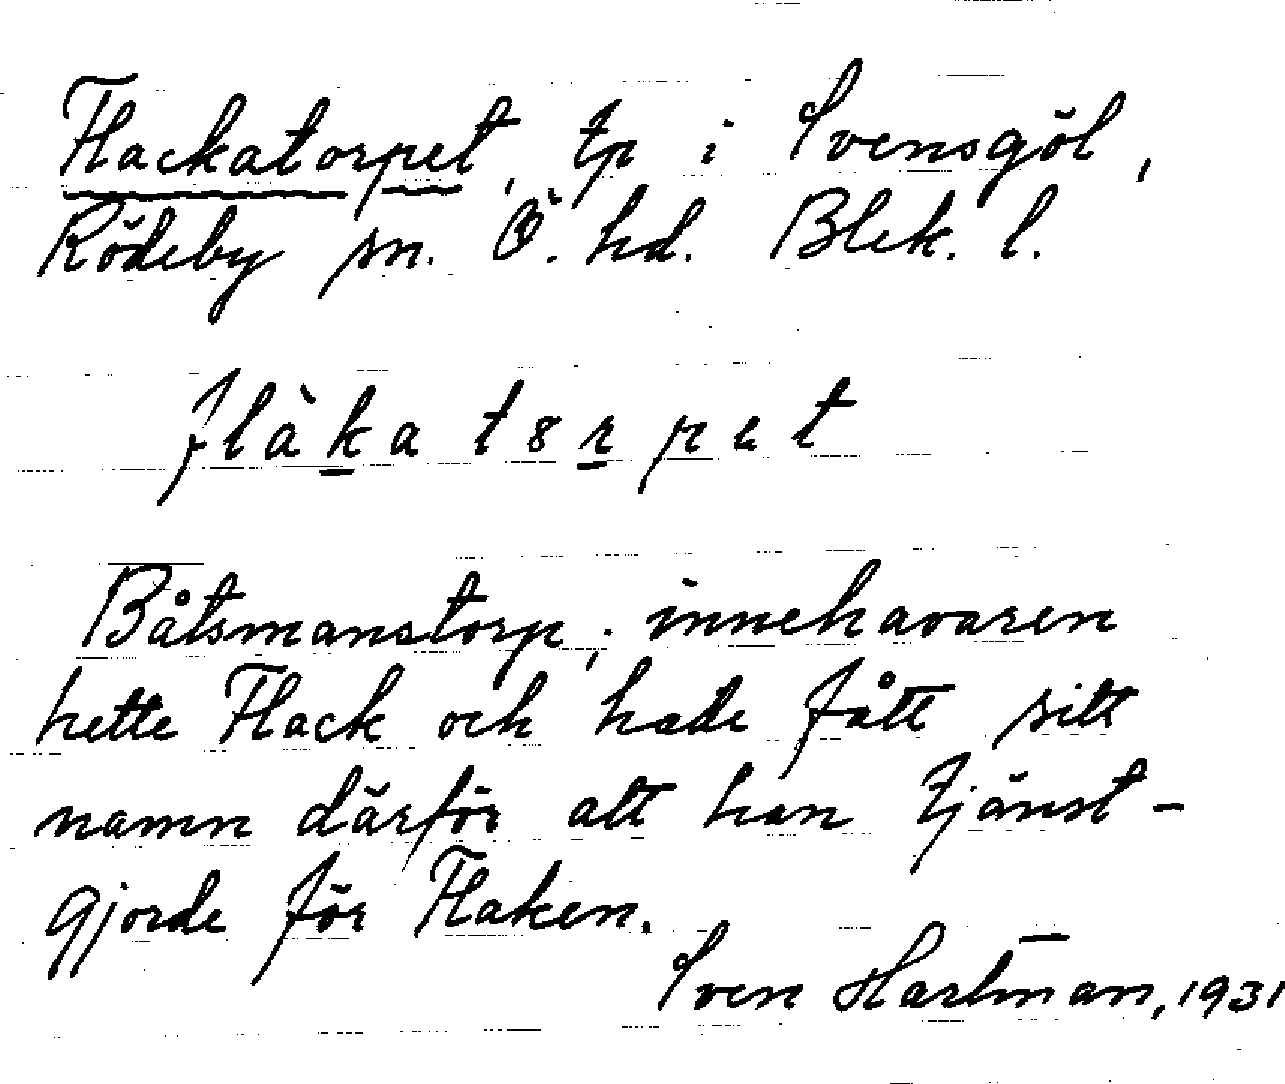 Flackatorpet, tp i Svensgöl,
Rödeby sn. Ö. hd. Blek. l.
flàka t8rpet
Båtsmanstorp; innehavaren
hette Flack och hade fått sitt
namn därför att han tjänst-
gjorde för Flaken.
Sven Hartman, 1931